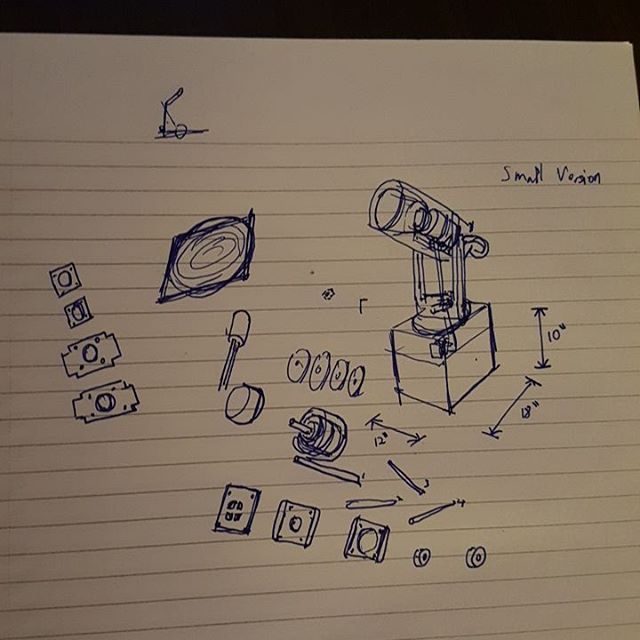 Small Version
10"
12"